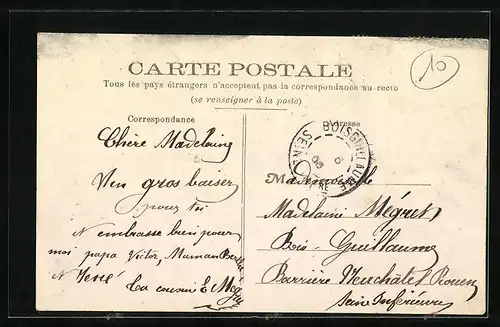 CARTE POSTALE
Tous les pays étrangers n'acceptent pas la correspondance au recto
(se renseigner à la poste)
10
Correspondance
Adresse
Chère Madelaine
Un gros baiser
pour toi
et embrasse bien pour
moi papa Victor, Maman
et René
La cousin E
BOISGUILLAUME
SEINE
Mademoiselle
Madelaine Mégret
Bois-Guillaume
Barrière Neuchâtel Rouen
Seine Inférieure